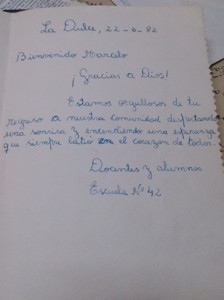 La Dulce, 22-6-82
Bienvenido Marcelo
¡Gracias a Dios!
Estamos orgullosos de tu
regreso a nuestra comunidad disfrutando
una sonrisa y encendiendo una esperanza
que siempre latió en el corazón de todos.
Docentes y alumnos
Escuela Nº 42